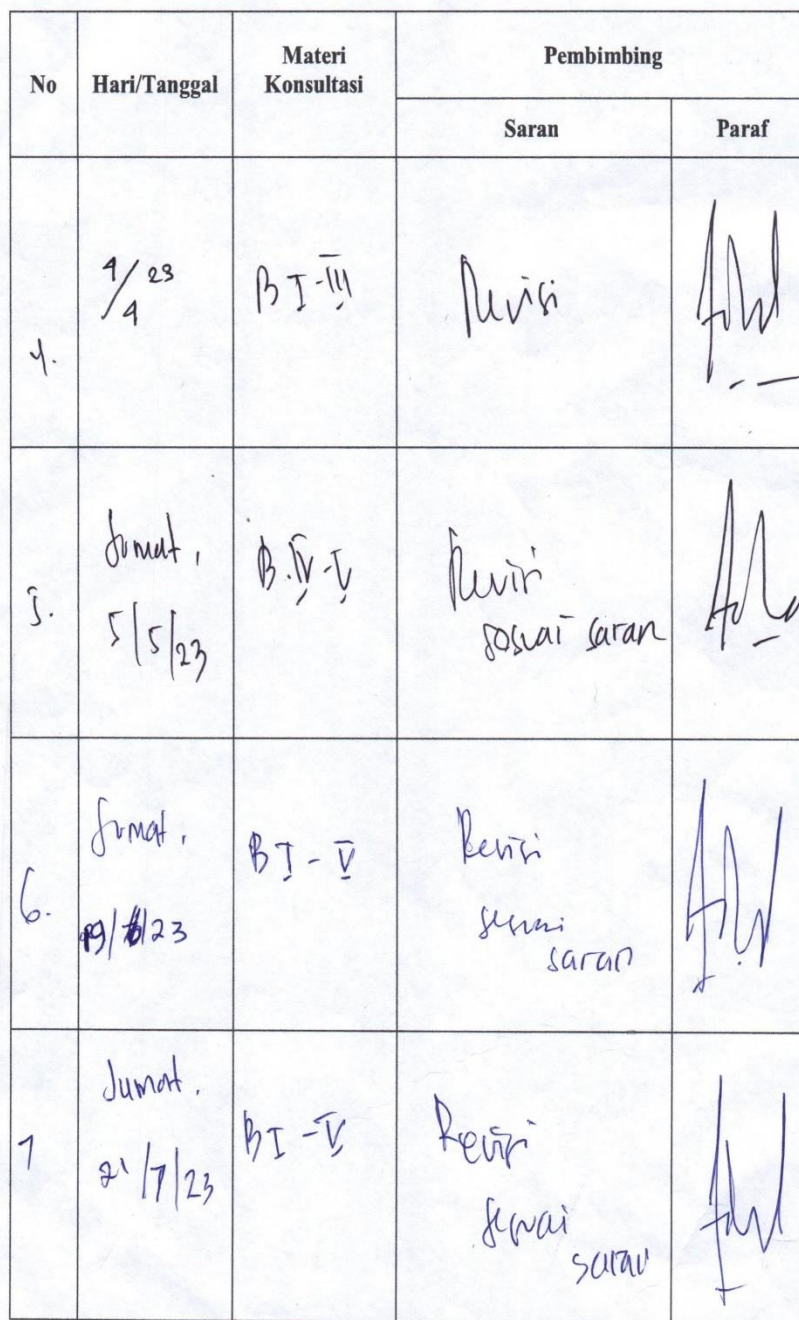 No Hari/Tanggal Materi Konsultasi Pembimbing
Saran Paraf
4. 4/4 23 B I-III Revisi
5. Jumat, B.IV-V Revisi
5/5/23 sesuai saran
6. Jumat, B I - V Revisi
sesuai
saran
7 Jumat. B I - V Revisi
21/7/23 sesuai
saran